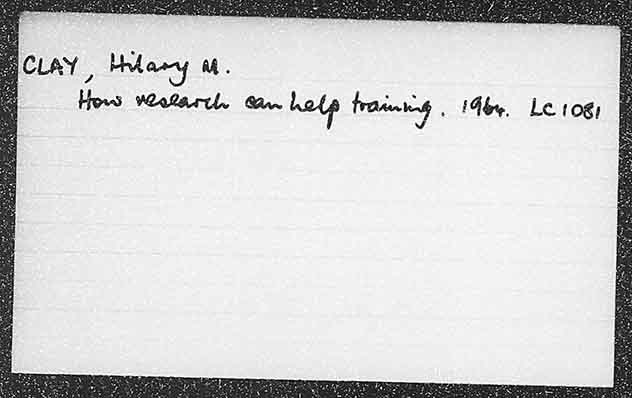 CLAY, Hilary M.
How research can help training. 1964. LC1081